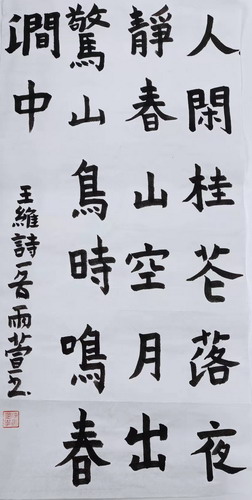 人閑桂花落夜
靜春山空月出
驚山鳥時鳴春
澗中
王維詩一首雨萱書